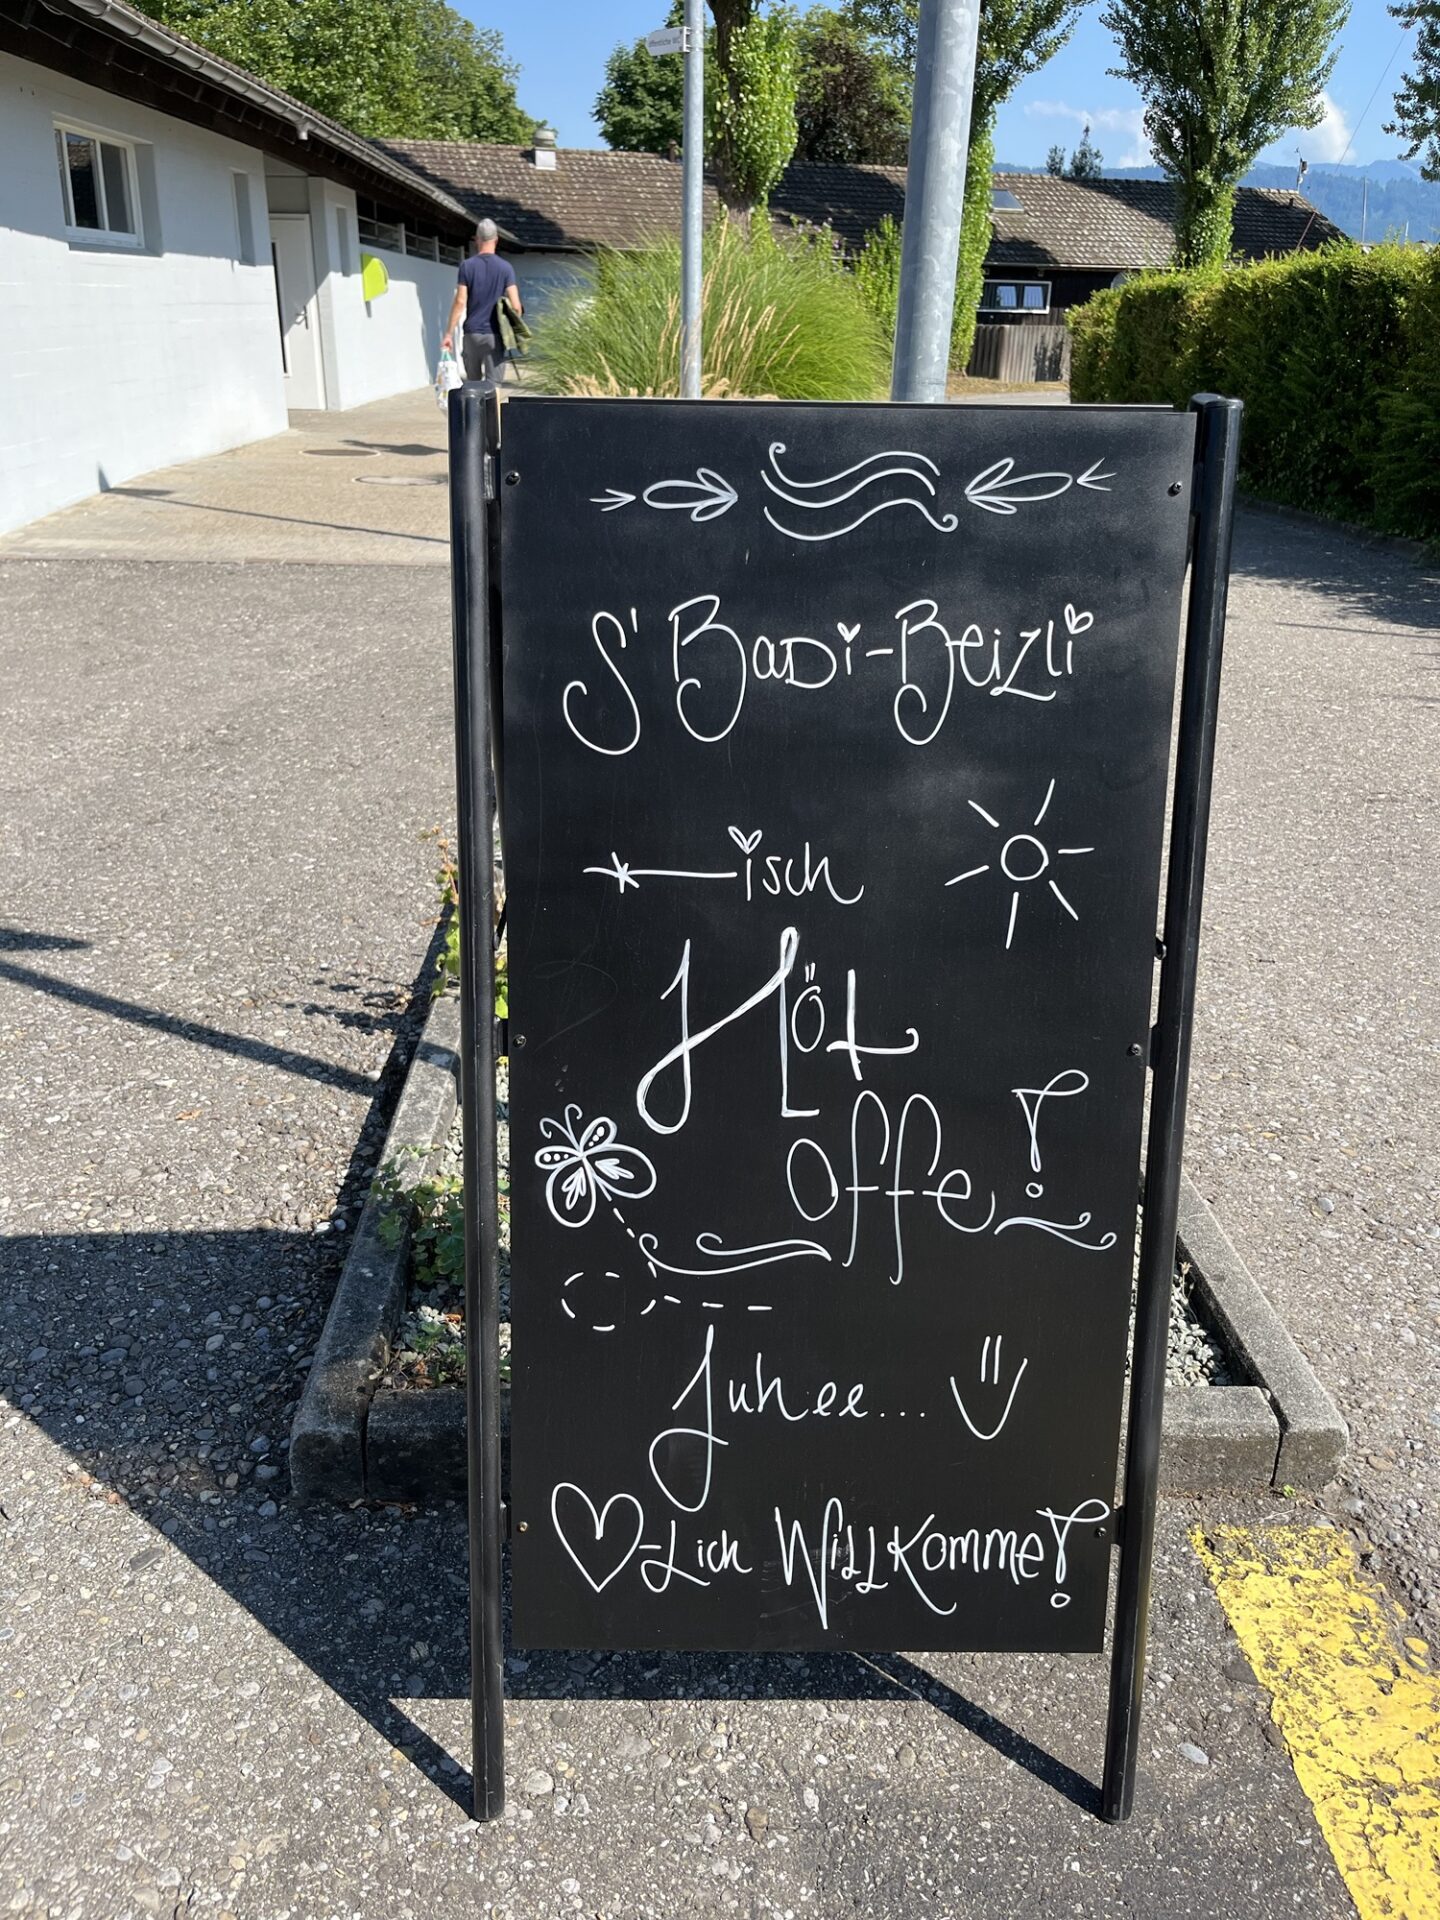 öffentliche WC
S' Badi-Beizli
isch
Höt
offe!
Juhee...
-Lich Willkomme!